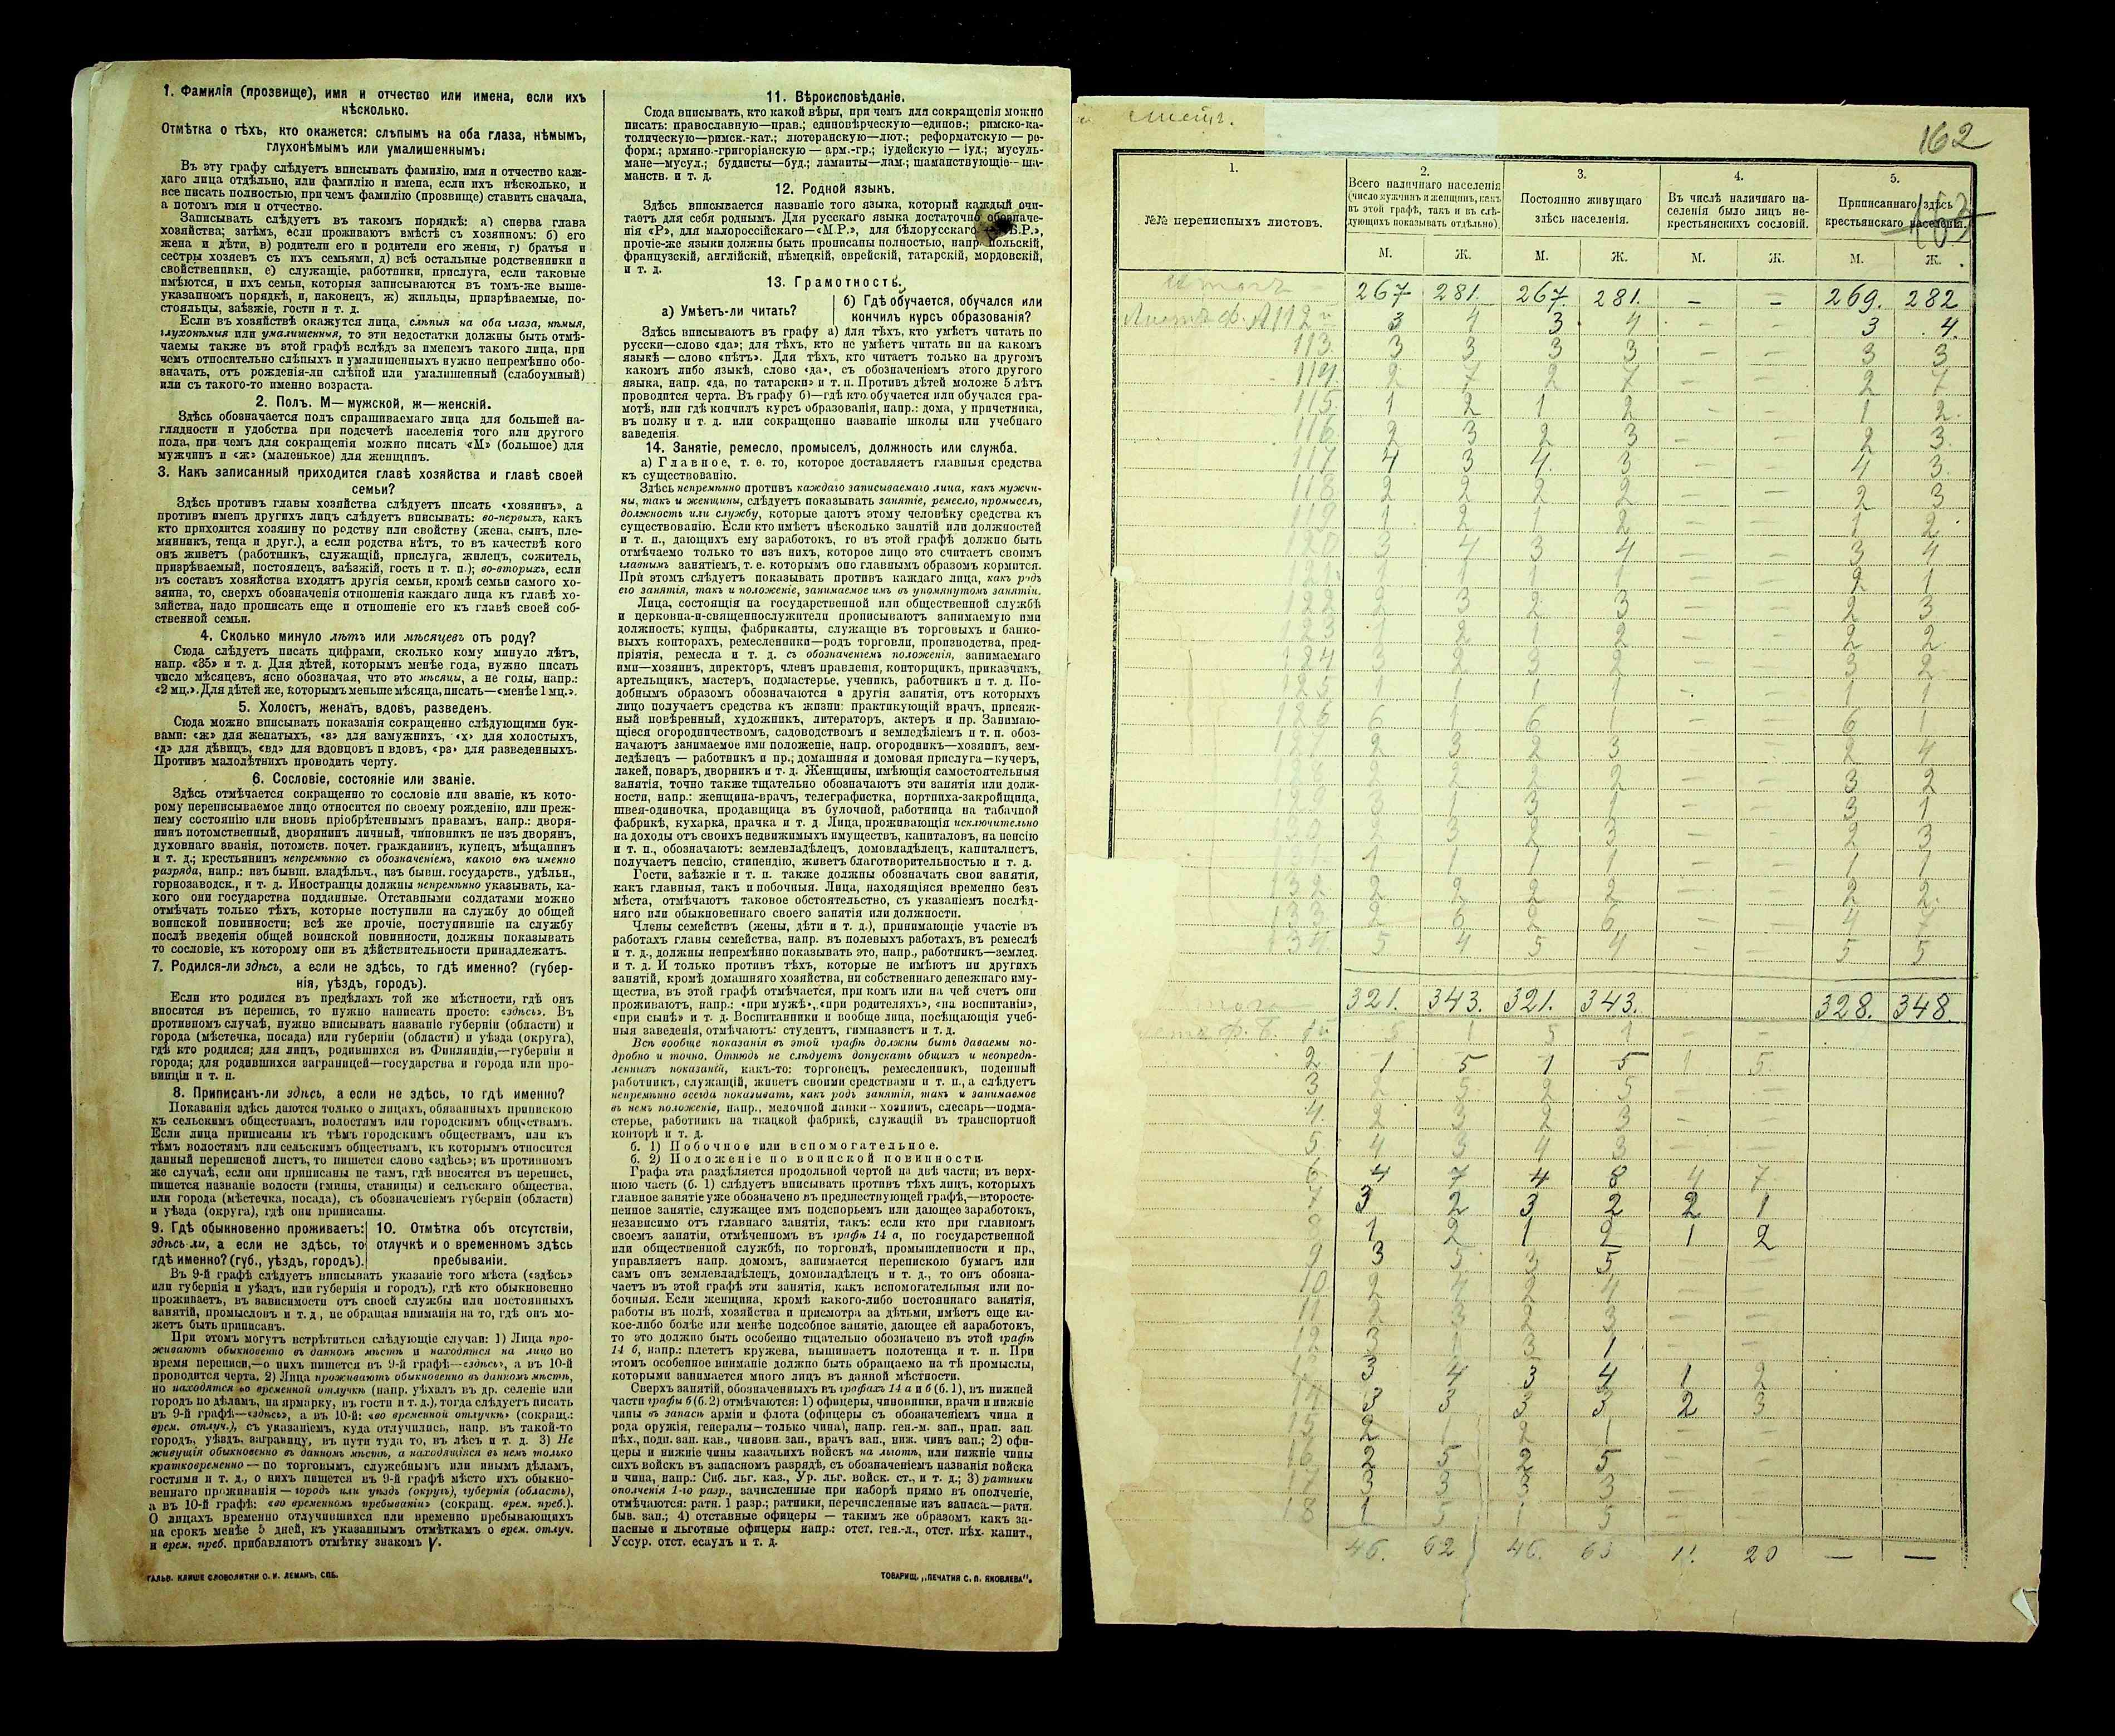 1. Фамилія (прозвище), имя и отчество или имена, если ихъ
нѣсколько.
Отмѣтка о тѣхъ, кто окажется: слѣпымъ на оба глаза, нѣмымъ,
глухонѣмымъ или умалишеннымъ.
Въ эту графу слѣдуетъ вписывать фамилію, имя и отчество каж-
даго лица отдѣльно, или фамилію и имена, если ихъ нѣсколько, и
все писать полностью, при чемъ фамилію (прозвище) ставить сначала,
а потомъ имя и отчество.
Записывать слѣдуетъ въ такомъ порядкѣ: а) сперва глава
хозяйства; затѣмъ, если проживаютъ вмѣстѣ съ хозяиномъ: б) его
жена и дѣти, в) родители его и родители его жены, г) братья и
сестры хозяевъ съ ихъ семьями, д) всѣ остальные родственники и
свойственники, е) служащіе, работники, прислуга, если таковые
имѣются, и ихъ семьи, которыя записываются въ томъ-же выше-
указанномъ порядкѣ, и, наконецъ, ж) жильцы, призрѣваемые, по-
стояльцы, заѣзжіе, гости и т. д.
Если въ хозяйствѣ окажутся лица, слѣпыя на оба глаза, нѣмыя,
глухонѣмыя или умалишенныя, то эти недостатки должны быть отмѣ-
чаемы также въ этой графѣ вслѣдъ за именемъ такого лица, при
чемъ относительно слѣпыхъ и умалишенныхъ нужно непремѣнно обо-
значать, отъ рожденія-ли слѣпой или умалишенный (слабоумный)
или съ такого-то именно возраста.
2. Полъ. М—мужской, ж—женскій.
Здѣсь обозначается полъ спрашиваемаго лица для большей на-
глядности и удобства при подсчетѣ населенія того или другого
пола, при чемъ для сокращенія можно писать «М» (большое) для
мужчинъ и «ж» (маленькое) для женщинъ.
3. Какъ записанный приходится главѣ хозяйства и главѣ своей
семьи?
Здѣсь противъ главы хозяйства слѣдуетъ писать «хозяинъ», а
противъ именъ другихъ лицъ слѣдуетъ вписывать: во-первыхъ, какъ
кто приходится хозяину по родству или свойству (жена, сынъ, пле-
мянникъ, теща и друг.), а если родства нѣтъ, то въ качествѣ кого
онъ живетъ (работникъ, служащій, прислуга, жилецъ, сожитель,
призрѣваемый, постоялецъ, заѣзжій, гость и т. п.); во-вторыхъ, если
въ составъ хозяйства входятъ другія семьи, кромѣ семьи самого хо-
зяина, то, сверхъ обозначенія отношенія каждаго лица къ главѣ хо-
зяйства, надо прописать еще и отношеніе его къ главѣ своей соб-
ственной семьи.
4. Сколько минуло лѣтъ или мѣсяцевъ отъ роду?
Сюда слѣдуетъ писать цифрами, сколько кому минуло лѣтъ,
напр. «35» и т. д. Для дѣтей, которымъ менѣе года, нужно писать
число мѣсяцевъ, ясно обозначая, что это мѣсяцы, а не годы, напр.:
«2 мц.». Для дѣтей же, которымъ меньше мѣсяца, писать—«менѣе 1 мц.».
5. Холостъ, женатъ, вдовъ, разведенъ.
Сюда можно вписывать показанія сокращенно слѣдующими бук-
вами: «ж» для женатыхъ, «з» для замужнихъ, «х» для холостыхъ,
«д» для дѣвицъ, «вд» для вдовцовъ и вдовъ, «рз» для разведенныхъ.
Противъ малолѣтнихъ проводить черту.
6. Сословіе, состояніе или званіе.
Здѣсь отмѣчается сокращенно то сословіе или званіе, къ кото-
рому переписываемое лицо относится по своему рожденію, или преж-
нему состоянію или вновь пріобрѣтеннымъ правамъ, напр.: дворя-
нинъ потомственный, дворянинъ личный, чиновникъ не изъ дворянъ,
духовнаго званія, потомств. почет. гражданинъ, купецъ, мѣщанинъ
и т. д.; крестьянинъ непремѣнно съ обозначеніемъ, какого онъ именно
разряда, напр.: изъ бывш. владѣльч., изъ бывш. государств., удѣльн.,
горнозаводск., и т. д. Иностранцы должны непремѣнно указывать, ка-
кого они государства подданные. Отставными солдатами можно
отмѣчать только тѣхъ, которые поступили на службу до общей
воинской повинности; всѣ же прочіе, поступившіе на службу
послѣ введенія общей воинской повинности, должны показывать
то сословіе, къ которому они въ дѣйствительности принадлежатъ.
7. Родился-ли здѣсь, а если не здѣсь, то гдѣ именно? (губер-
нія, уѣздъ, городъ).
Если кто родился въ предѣлахъ той же мѣстности, гдѣ онъ
вносится въ перепись, то нужно написать просто: «здѣсь». Въ
противномъ случаѣ, нужно вписывать названіе губерніи (области) и
города (мѣстечка, посада) или губерніи (области) и уѣзда (округа),
гдѣ кто родился; для лицъ, родившихся въ Финляндіи,—губерніи и
города; для родившихся заграницей—государства и города или про-
винціи и т. п.
8. Приписанъ-ли здѣсь, а если не здѣсь, то гдѣ именно?
Показанія здѣсь даются только о лицахъ, обязанныхъ припискою
къ сельскимъ обществамъ, волостямъ или городскимъ обществамъ.
Если лица приписаны къ тѣмъ городскимъ обществамъ, или къ
тѣмъ волостямъ или сельскимъ обществамъ, къ которымъ относится
данный переписной листъ, то пишется слово «здѣсь»; въ противномъ
же случаѣ, если они приписаны не тамъ, гдѣ вносятся въ перепись,
пишется названіе волости (гмины, станицы) и сельскаго общества,
или города (мѣстечка, посада), съ обозначеніемъ губерніи (области)
и уѣзда (округа), гдѣ они приписаны.
9. Гдѣ обыкновенно проживаетъ:
здѣсь-ли, а если не здѣсь, то
гдѣ именно? (губ., уѣздъ, городъ).
10. Отмѣтка объ отсутствіи,
отлучкѣ и о временномъ здѣсь
пребываніи.
Въ 9-й графѣ слѣдуетъ вписывать указаніе того мѣста («здѣсь»
или губернія и уѣздъ, или губернія и городъ), гдѣ кто обыкновенно
проживаетъ, въ зависимости отъ своей службы или постоянныхъ
занятій, промысловъ и т. д., не обращая вниманія на то, гдѣ онъ мо-
жетъ быть приписанъ.
При этомъ могутъ встрѣтиться слѣдующіе случаи: 1) Лица про-
живаютъ обыкновенно въ данномъ мѣстѣ и находятся на лицо во
время переписи,—о нихъ пишется въ 9-й графѣ—«здѣсь», а въ 10-й
проводится черта. 2) Лица проживаютъ обыкновенно въ данномъ мѣстѣ,
но находятся во временной отлучкѣ (напр. уѣхалъ въ др. селеніе или
городъ по дѣламъ, на ярмарку, въ гости и т. д.), тогда слѣдуетъ писать
въ 9-й графѣ—«здѣсь», а въ 10-й: «во временной отлучкѣ» (сокращ.:
врем. отлуч.), съ указаніемъ, куда отлучились, напр. въ такой-то
городъ, уѣздъ, заграницу, въ пути туда то, въ лѣсъ и т. д. 3) Не
живущія обыкновенно въ данномъ мѣстѣ, а находящіяся въ немъ только
кратковременно — по торговымъ, служебнымъ или инымъ дѣламъ,
гостями и т. д., о нихъ пишется въ 9-й графѣ мѣсто ихъ обыкно-
веннаго проживанія — городъ или уѣздъ (округъ), губернія (область),
а въ 10-й графѣ: «во временномъ пребываніи» (сокращ. врем. преб.).
О лицахъ временно отлучившихся или временно пребывающихъ
на срокъ менѣе 5 дней, къ указаннымъ отмѣткамъ о врем. отлуч.
и врем. преб. прибавляютъ отмѣтку знакомъ V.
ГАЛЬВ. КЛИШЕ СЛОВОЛИТНИ О. И. ЛЕМАНЪ, СПБ.
11. Вѣроисповѣданіе.
Сюда вписывать, кто какой вѣры, при чемъ для сокращенія можно
писать: православную—прав.; единовѣрческую—единов.; римско-ка-
толическую—римск.-кат.; лютеранскую—лют.; реформатскую — ре-
форм.; армяно-григоріанскую — арм.-гр.; іудейскую — іуд.; мусуль-
мане—мусул.; буддисты—буд.; ламаиты—лам.; шаманствующіе—ша-
манств. и т. д.
12. Родной языкъ.
Здѣсь вписывается названіе того языка, который каждый счи-
таетъ для себя роднымъ. Для русскаго языка достаточно обозначе-
нія «Р», для малороссійскаго—«М.Р.», для бѣлорусскаго «Б.Р.»,
прочіе-же языки должны быть прописаны полностью, напр. польскій,
французскій, англійскій, нѣмецкій, еврейскій, татарскій, мордовскій,
и т. д.
13. Грамотность.
а) Умѣетъ-ли читать?
б) Гдѣ обучается, обучался или
кончилъ курсъ образованія?
Здѣсь вписываютъ въ графу а) Для тѣхъ, кто умѣетъ читать по
русски—слово «да»; для тѣхъ, кто не умѣетъ читать ни на какомъ
языкѣ — слово «нѣтъ». Для тѣхъ, кто читаетъ только на другомъ
какомъ либо языкѣ, слово «да», съ обозначеніемъ этого другого
языка, напр. «да, по татарски» и т. п. Противъ дѣтей моложе 5 лѣтъ
проводится черта. Въ графу б)—гдѣ кто обучается или обучался гра-
мотѣ, или гдѣ кончилъ курсъ образованія, напр.: дома, у причетника,
въ полку и т. д. или сокращенно названіе школы или учебнаго
заведенія.
14. Занятіе, ремесло, промыселъ, должность или служба.
а) Главное, т. е. то, которое доставляетъ главныя средства
къ существованію.
Здѣсь непремѣнно противъ каждаго записываемаго лица, какъ мужчи-
ны, такъ и женщины, слѣдуетъ показывать занятіе, ремесло, промыселъ,
должность или службу, которые даютъ этому человѣку средства къ
существованію. Если кто имѣетъ нѣсколько занятій или должностей
и т. п., дающихъ ему заработокъ, то въ этой графѣ должно быть
отмѣчаемо только то изъ нихъ, которое лицо это считаетъ своимъ
главнымъ занятіемъ, т. е. которымъ оно главнымъ образомъ кормится.
При этомъ слѣдуетъ показывать противъ каждаго лица, какъ родъ
его занятія, такъ и положеніе, занимаемое имъ въ упомянутомъ занятіи.
Лица, состоящія на государственной или общественной службѣ
и церковно-и-священнослужители прописываютъ занимаемую ими
должность; купцы, фабриканты, служащіе въ торговыхъ и банко-
выхъ конторахъ, ремесленники—родъ торговли, производства, пред-
пріятія, ремесла и т. д. съ обозначеніемъ положенія, занимаемаго
ими—хозяинъ, директоръ, членъ правленія, конторщикъ, приказчикъ,
артельщикъ, мастеръ, подмастерье, ученикъ, работникъ и т. д. По-
добнымъ образомъ обозначаются и другія занятія, отъ которыхъ
лицо получаетъ средства къ жизни: практикующій врачъ, присяж-
ный повѣренный, художникъ, литераторъ, актеръ и пр. Занимаю-
щіеся огородничествомъ, садоводствомъ и земледѣліемъ и т. п. обоз-
начаютъ занимаемое ими положеніе, напр. огородникъ—хозяинъ, зем-
ледѣлецъ — работникъ и пр.; домашняя и домовая прислуга—кучеръ,
лакей, поваръ, дворникъ и т. д. Женщины, имѣющія самостоятельныя
занятія, точно также тщательно обозначаютъ эти занятія или долж-
ности, напр.: женщина-врачъ, телеграфистка, портниха-закройщица,
швея-одиночка, продавщица въ булочной, работница на табачной
фабрикѣ, кухарка, прачка и т. д. Лица, проживающія исключительно
на доходы отъ своихъ недвижимыхъ имуществъ, капиталовъ, на пенсію
и т. п., обозначаютъ: землевладѣлецъ, домовладѣлецъ, капиталистъ,
получаетъ пенсію, стипендію, живетъ благотворительностью и т. д.
Гости, заѣзжіе и т. п. также должны обозначать свои занятія,
какъ главныя, такъ и побочныя. Лица, находящіяся временно безъ
мѣста, отмѣчаютъ таковое обстоятельство, съ указаніемъ послѣд-
няго или обыкновеннаго своего занятія или должности.
Члены семействъ (жены, дѣти и т. д.), принимающіе участіе въ
работахъ главы семейства, напр. въ полевыхъ работахъ, въ ремеслѣ
и т. д., должны непремѣнно показывать это, напр., работникъ—землед.
и т. д. И только противъ тѣхъ, которые не имѣютъ ни другихъ
занятій, кромѣ домашняго хозяйства, ни собственнаго денежнаго иму-
щества, въ этой графѣ отмѣчается, при комъ или на чей счетъ они
проживаютъ, напр.: «при мужѣ», «при родителяхъ», «на воспитаніи»,
«при сынѣ» и т. д. Воспитанники и вообще лица, посѣщающія учеб-
ныя заведенія, отмѣчаютъ: студентъ, гимназистъ и т. д.
Всѣ вообще показанія въ этой графѣ должны быть даваемы по-
дробно и точно. Отнюдь не слѣдуетъ допускать общихъ и неопредѣ-
ленныхъ показаній, какъ-то: торговецъ, ремесленникъ, поденный
работникъ, служащій, живетъ своими средствами и т. п., а слѣдуетъ
непремѣнно всегда показывать, какъ родъ занятія, такъ и занимаемое
въ немъ положеніе, напр., мелочной лавки—хозяинъ, слесарь—подма-
стерье, работникъ на ткацкой фабрикѣ, служащій въ транспортной
конторѣ и т. д.
б. 1) Побочное или вспомогательное.
б. 2) Положеніе по воинской повинности.
Графа эта раздѣляется продольной чертой на двѣ части; въ верх-
нюю часть (б. 1) слѣдуетъ вписывать противъ тѣхъ лицъ, которыхъ
главное занятіе уже обозначено въ предшествующей графѣ,—второсте-
пенное занятіе, служащее имъ подспорьемъ или дающее заработокъ,
независимо отъ главнаго занятія, такъ: если кто при главномъ
своемъ занятіи, отмѣченномъ въ графѣ 14 а, по государственной
или общественной службѣ, по торговлѣ, промышленности и пр.,
управляетъ напр. домомъ, занимается перепискою бумагъ или
самъ онъ землевладѣлецъ, домовладѣлецъ и т. д., то онъ обозна-
чаетъ въ этой графѣ эти занятія, какъ вспомогательныя или по-
бочныя. Если женщина, кромѣ какого-либо постояннаго занятія,
работы въ полѣ, хозяйства и присмотра за дѣтьми, имѣетъ еще ка-
кое-либо болѣе или менѣе подсобное занятіе, дающее ей заработокъ,
то это должно быть особенно тщательно обозначено въ этой графѣ
14 б, напр.: плететъ кружева, вышиваетъ полотенца и т. п. При
этомъ особенное вниманіе должно быть обращаемо на тѣ промыслы,
которыми занимается много лицъ въ данной мѣстности.
Сверхъ занятій, обозначенныхъ въ графахъ 14 а и б (б. 1), въ нижней
части графы б (б. 2) отмѣчаются: 1) офицеры, чиновники, врачи и нижніе
чины въ запасѣ арміи и флота (офицеры съ обозначеніемъ чина и
рода оружія, генералы—только чина), напр. ген.-м. зап., прап. зап.
пѣх., подп. зап. кав., чиновн. зап., врачъ зап., ниж. чинъ зап.; 2) офи-
церы и нижніе чины казачьихъ войскъ на льготѣ, или нижніе чины
сихъ войскъ въ запасномъ разрядѣ, съ обозначеніемъ названія войска
и чина, напр.: Сиб. льг. каз., Ур. льг. войск. ст., и т. д.; 3) ратники
ополченія 1-го разр., зачисленные при наборѣ прямо въ ополченіе,
отмѣчаются: ратн. 1 разр.; ратники, перечисленные изъ запаса—ратн.
быв. зап.; 4) отставные офицеры — такимъ же образомъ какъ за-
пасные и льготные офицеры напр.: отст. ген.-л., отст. пѣх. капит.,
Уссур. отст. есаулъ и т. д.
ТОВАРИЩ. „ПЕЧАТНЯ С. П. ЯКОВЛЕВА".
162
163
1. 2. 3. 4. 5.
№№ переписныхъ листовъ.
Всего наличнаго населенія
(число мужчинъ и женщинъ, какъ
въ этой графѣ, такъ и въ слѣ-
дующихъ показывать отдѣльно).
Постоянно живущаго
здѣсь населенія.
Въ числѣ наличнаго на-
селенія было лицъ не-
крестьянскихъ сословій.
Приписаннаго здѣсь
крестьянскаго населенія.
М. Ж. М. Ж. М. Ж. М. Ж.
Итого 267 281 267 281 – – 269 282
Листъ ф. А 112 3 4 3 4 – – 3 4
113 3 3 3 3 – – 3 3
114 2 7 2 7 – – 2 7
115 1 2 1 2 – – 1 2
116 2 3 2 3 – – 2 3
117 4 3 4 3 – – 4 3
118 2 2 2 2 – – 2 3
119 1 2 1 2 – – 1 2
120 3 4 3 4 – – 3 4
121 1 1 1 1 – – 2 1
122 2 3 2 3 – – 2 3
123 1 2 1 2 – – 2 2
124 3 2 3 2 – – 3 2
125 1 1 1 1 – – 1 1
126 6 1 6 1 – – 6 1
127 2 3 2 3 – – 2 4
2 2 – – 3 2
3 1 3 1 – – 3 1
130 2 3 2 3 – – 2 3
131 1 1 1 1 – – 1 1
132 2 2 2 2 – – 2 2
133 2 6 2 6 – – 4 7
134 5 4 5 4 – – 5 5
Итого 321. 343. 321. 343. 328. 348.
ф. Б. 1 5 1 5 1 – –
2 1 5 1 5 1 5
3 2 5 2 5 – –
4 2 3 2 3 – –
5 4 3 4 3 – –
6 4 7 4 8 4 7
7 3 2 3 2 2 1
8 1 2 1 2 1 2
9 3 5 3 5 – –
10 2 4 2 4 – –
11 2 3 2 3 – –
12 3 1 3 1 – –
13 3 4 3 4 1 2
14 3 3 3 3 2 3
15 2 1 2 1 – –
16 2 5 2 5 – –
17 3 3 3 3 – –
18 1 5 1 5 – –
46. 62 46. 63 11. 20 — —